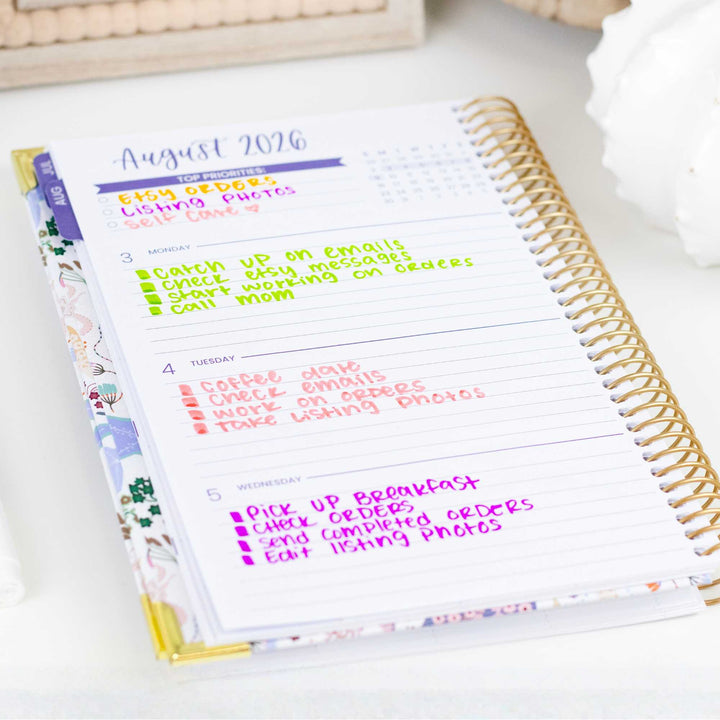 JUL
AUG
August 2026
TOP PRIORITIES:
Etsy ORDERS
Listing Photos
Self Care
S M T W T F S
3 MONDAY
Catch up on emails
Check etsy messages
Start working on orders
Call Mom
4 TUESDAY
Coffee date
Check emails
work on orders
take Listing Photos
5 WEDNESDAY
Pick up Breakfast
CHECK ORDERS
Send Completed ORDERS
Edit listing Photos